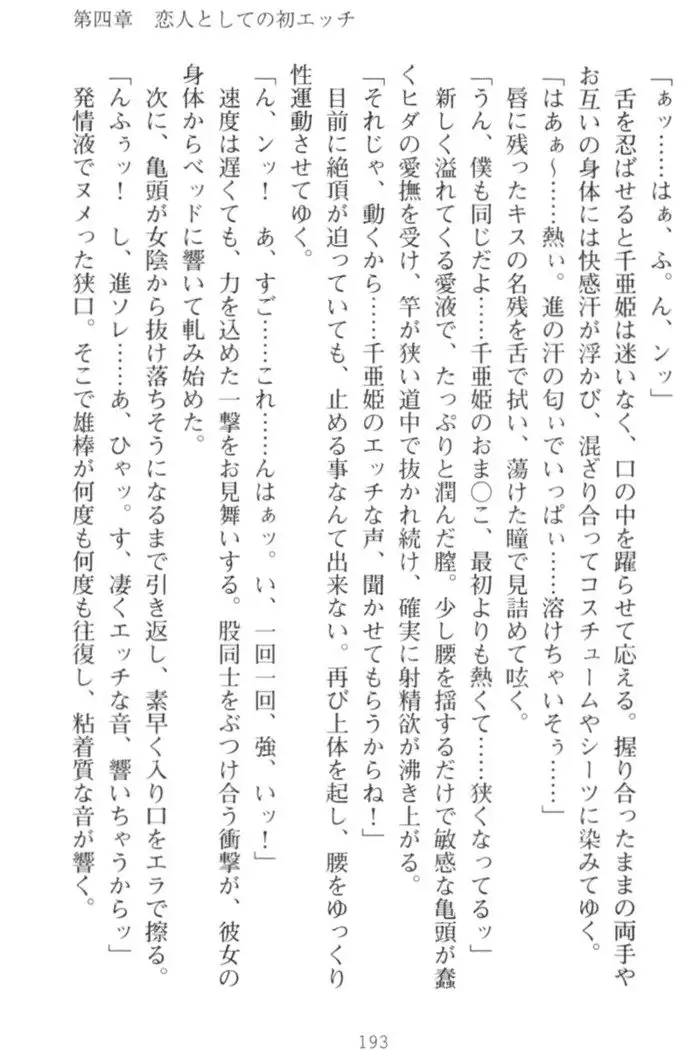 第四章　恋人としての初エッチ
「ぁッ……はぁ、ふ。ん、ンッ」
　舌を忍ばせると千亜姫は迷いなく、口の中を躍らせて応える。握り合ったままの両手や
お互いの身体には快感汗が浮かび、混ざり合ってコスチュームやシーツに染みてゆく。
「はあぁ～……熱ぃ。進の汗の匂ぃでいっぱぃ……溶けちゃいそぅ……」
　唇に残ったキスの名残を舌で拭い、蕩けた瞳で見詰めて呟く。
「うん、僕も同じだよ……千亜姫のおま〇こ、最初よりも熱くて……狭くなってるッ」
　新しく溢れてくる愛液で、たっぷりと潤んだ膣。少し腰を揺するだけで敏感な亀頭が蠢
くヒダの愛撫を受け、竿が狭い道中で抜かれ続け、確実に射精欲が沸き上がる。
「それじゃ、動くから……千亜姫のエッチな声、聞かせてもらうからね！」
　目前に絶頂が迫っていても、止める事なんて出来ない。再び上体を起し、腰をゆっくり
性運動させてゆく。
「ん、ンッ！　あ、すご……これ……んはぁッ。い、一回一回、強、いッ！」
　速度は遅くても、力を込めた一撃をお見舞いする。股同士をぶつけ合う衝撃が、彼女の
身体からベッドに響いて軋み始めた。
　次に、亀頭が女陰から抜け落ちそうになるまで引き返し、素早く入り口をエラで擦る。
「んふぅッ！　し、進ソレ……あ、ひゃッ。す、凄くエッチな音、響いちゃうからッ」
　発情液でヌメった狭口。そこで雄棒が何度も何度も往復し、粘着質な音が響く。
193